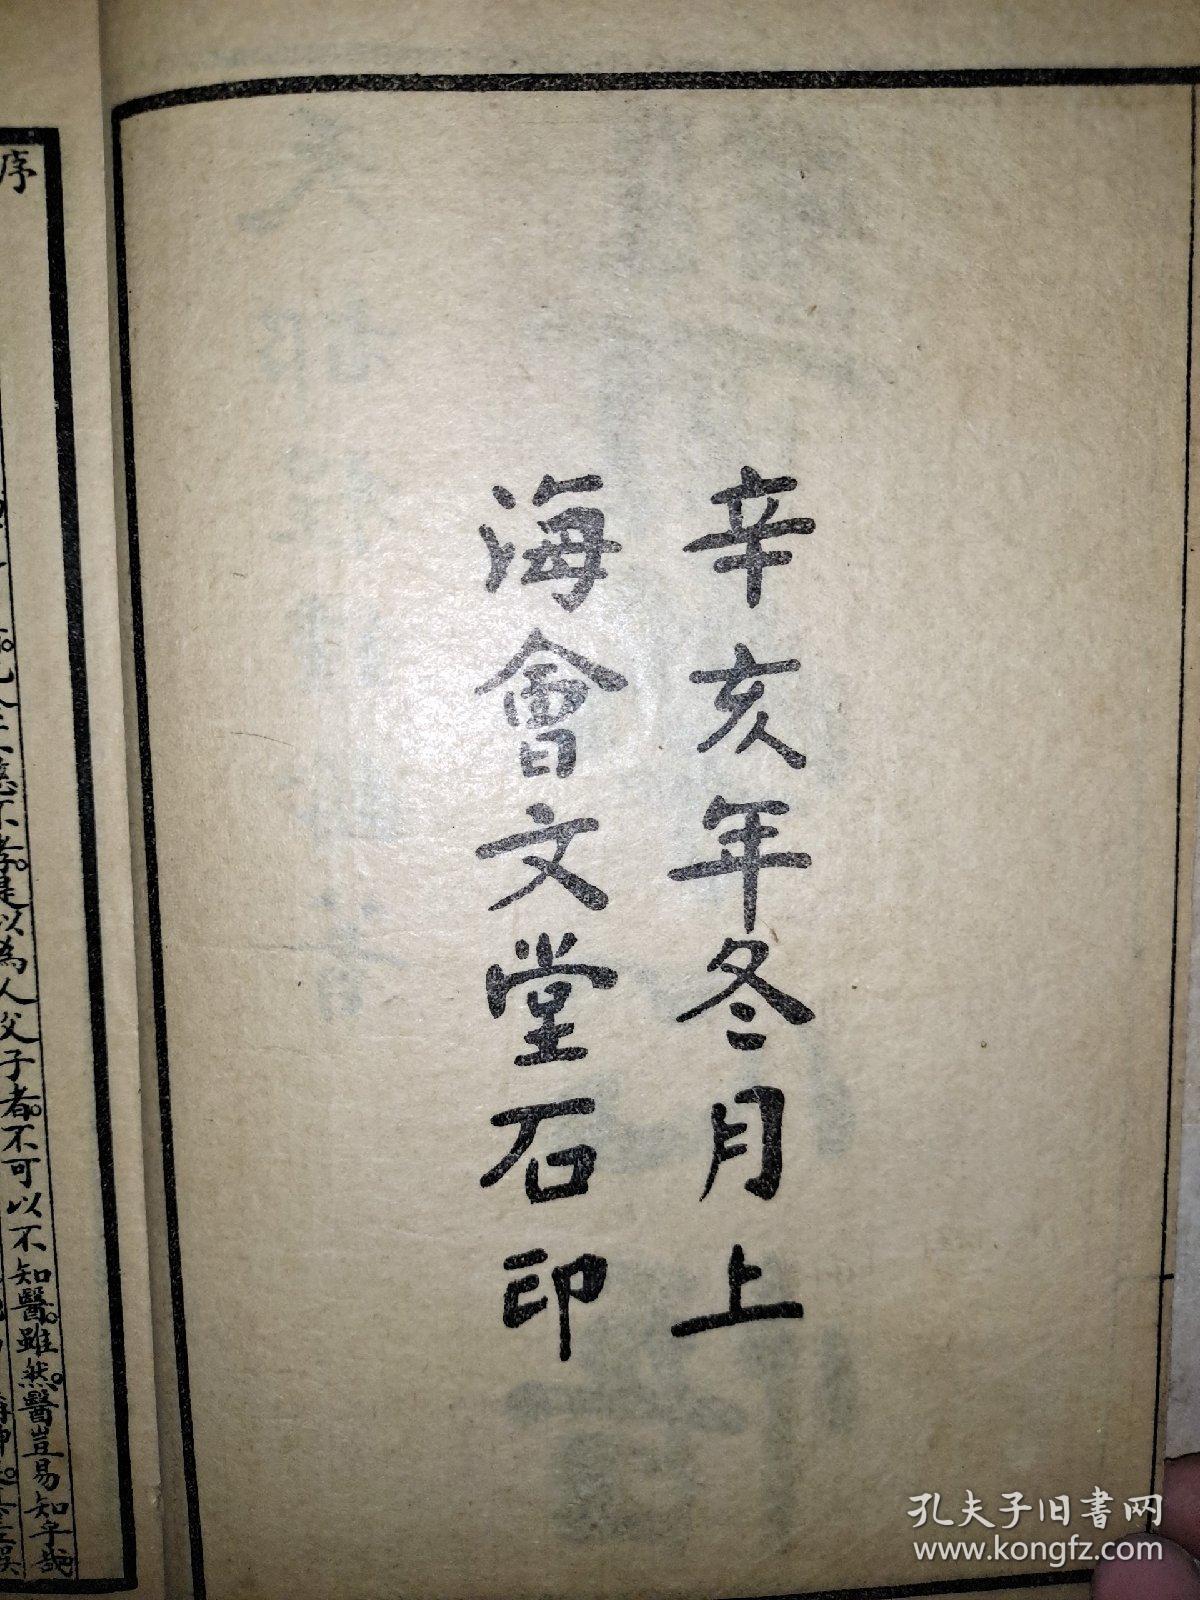 辛亥年冬月上
海會文堂石印
序
不慈不孝。是以為人父子者。不可以不
知醫。雖然。醫豈易知乎哉
孔夫子旧書网
www.kongfz.com